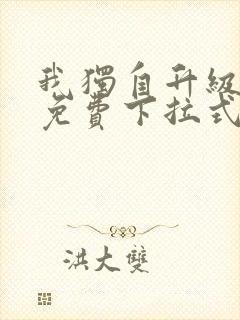 我獨自升級
免費下拉式
洪大雙